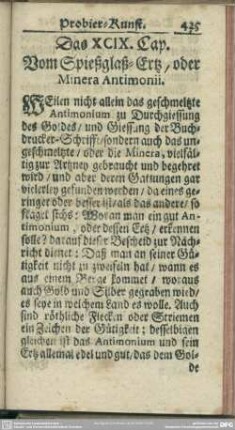 Probier-Kunst. 425
Das XCIX. Cap.
Vom Spießglaß-Ertz / oder
Minera Antimonii.
WEilen nicht allein das geschmeltzte
Antimonium zu Durchgiessung
des Goldes / und Giessung der Buch-
drucker-Schrifft / sondern auch das un-
geschmeltzte / oder die Minera, vielfäl-
tig zur Artzney gebraucht und begehret
wird / und aber deren Gattungen gar
vielerley gefunden werden / da eines ge-
ringer oder besser ist / als das andere / so
fragt sichs: Woran man ein gut An-
timonium, oder dessen Ertz / erkennen
solle? darauf dieser Bescheid zur Nach-
richt dienet: Daß man an seiner Gü-
tigkeit nicht zu zweifeln hat / wann es
aus einem Berge kommet / woraus
auch Gold und Silber gegraben wird /
es seye in welchem Land es wolle. Auch
sind röthliche Flecken oder Striemen
ein Zeichen der Gütigkeit; desselbigen
gleichen ist das Antimonium und sein
Ertz allemal edel und gut / das dem Gol-
de